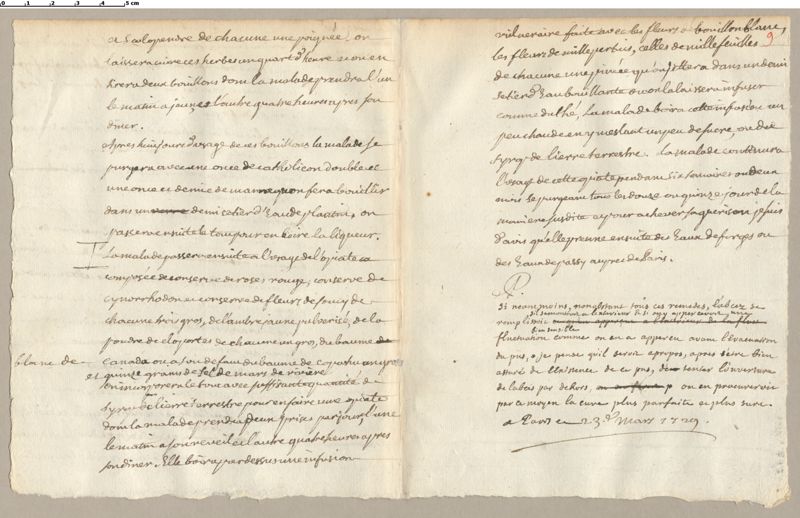 0 1 2 3 4 5 cm
et scolopendre de chacune une poignée. on
laissera cuire ces herbes un quart d'heure et on en
tirera deux bouillons dont la malade prendra l'un
le matin a jeun, et l'autre quatre heures apres son
diner.
Apres huit jours d'usage de ces bouillons la malade se
purgera avec une once de catholicon double et
une once et demie de manne qu'on fera bouillir
dans un demi setier d'eau de plantin, on
passera ensuite le tout pour en boire la liqueur.
La malade passera ensuite a l'usage de l'opiate
composée de conserve de roses rouge, conserve de
cynorrhodon et conserve de fleurs de soucy de
chacune trois gros, de l'ambre jaune pulverisé, de la
poudre de cloportes de chacune un gros, du baume
blanc de Canada ou a son defaut du baume de copahu un gros
et quinze grains de sel de mars de riviere
on incorporera le tout avec suffisante quantité de
syrop de lierre terrestre pour en faire une opiate
dont la malade prendra deux prises par jour, l'une
le matin a son reveil et l'autre quatre heures apres
son diner. Elle boira par dessus une infusion
9
vulneraire faite avec les fleurs de bouillon blanc,
les fleurs de millepertuis, celles de millefeuilles
de chacune une pincée qu'on jettera dans un demi
setier d'eau bouillante ou on la laissera infuser
comme du thé. La malade boira cette infusion un
peu chaude en y meslant un peu de sucre, ou du
syrop de lierre terrestre. La malade continuera
l'usage de cette opiate pendant six semaines ou deux
mois se purgeant tous les douze ou quinze jours de la
maniere susdite et pour achever sa guerison je suis
d'avis qu'elle prenne ensuite des Eaux de forges ou
des Eaux de passy aupres de Paris.
Si neanmoins, nonobstant tous ces remedes, l'abcez se
remplissoit
fluctuation comme on en a apperceu avant l'evacuation
du pus, je pense qu'il seroit apropos, apres s'être bien
assuré de l'existence de ce pus, de tenter l'ouverture
de l'abcés par dehors, on en procureroit
par ce moyen la cure plus parfaite et plus sure.
a Paris ce 23e Mars 1729.